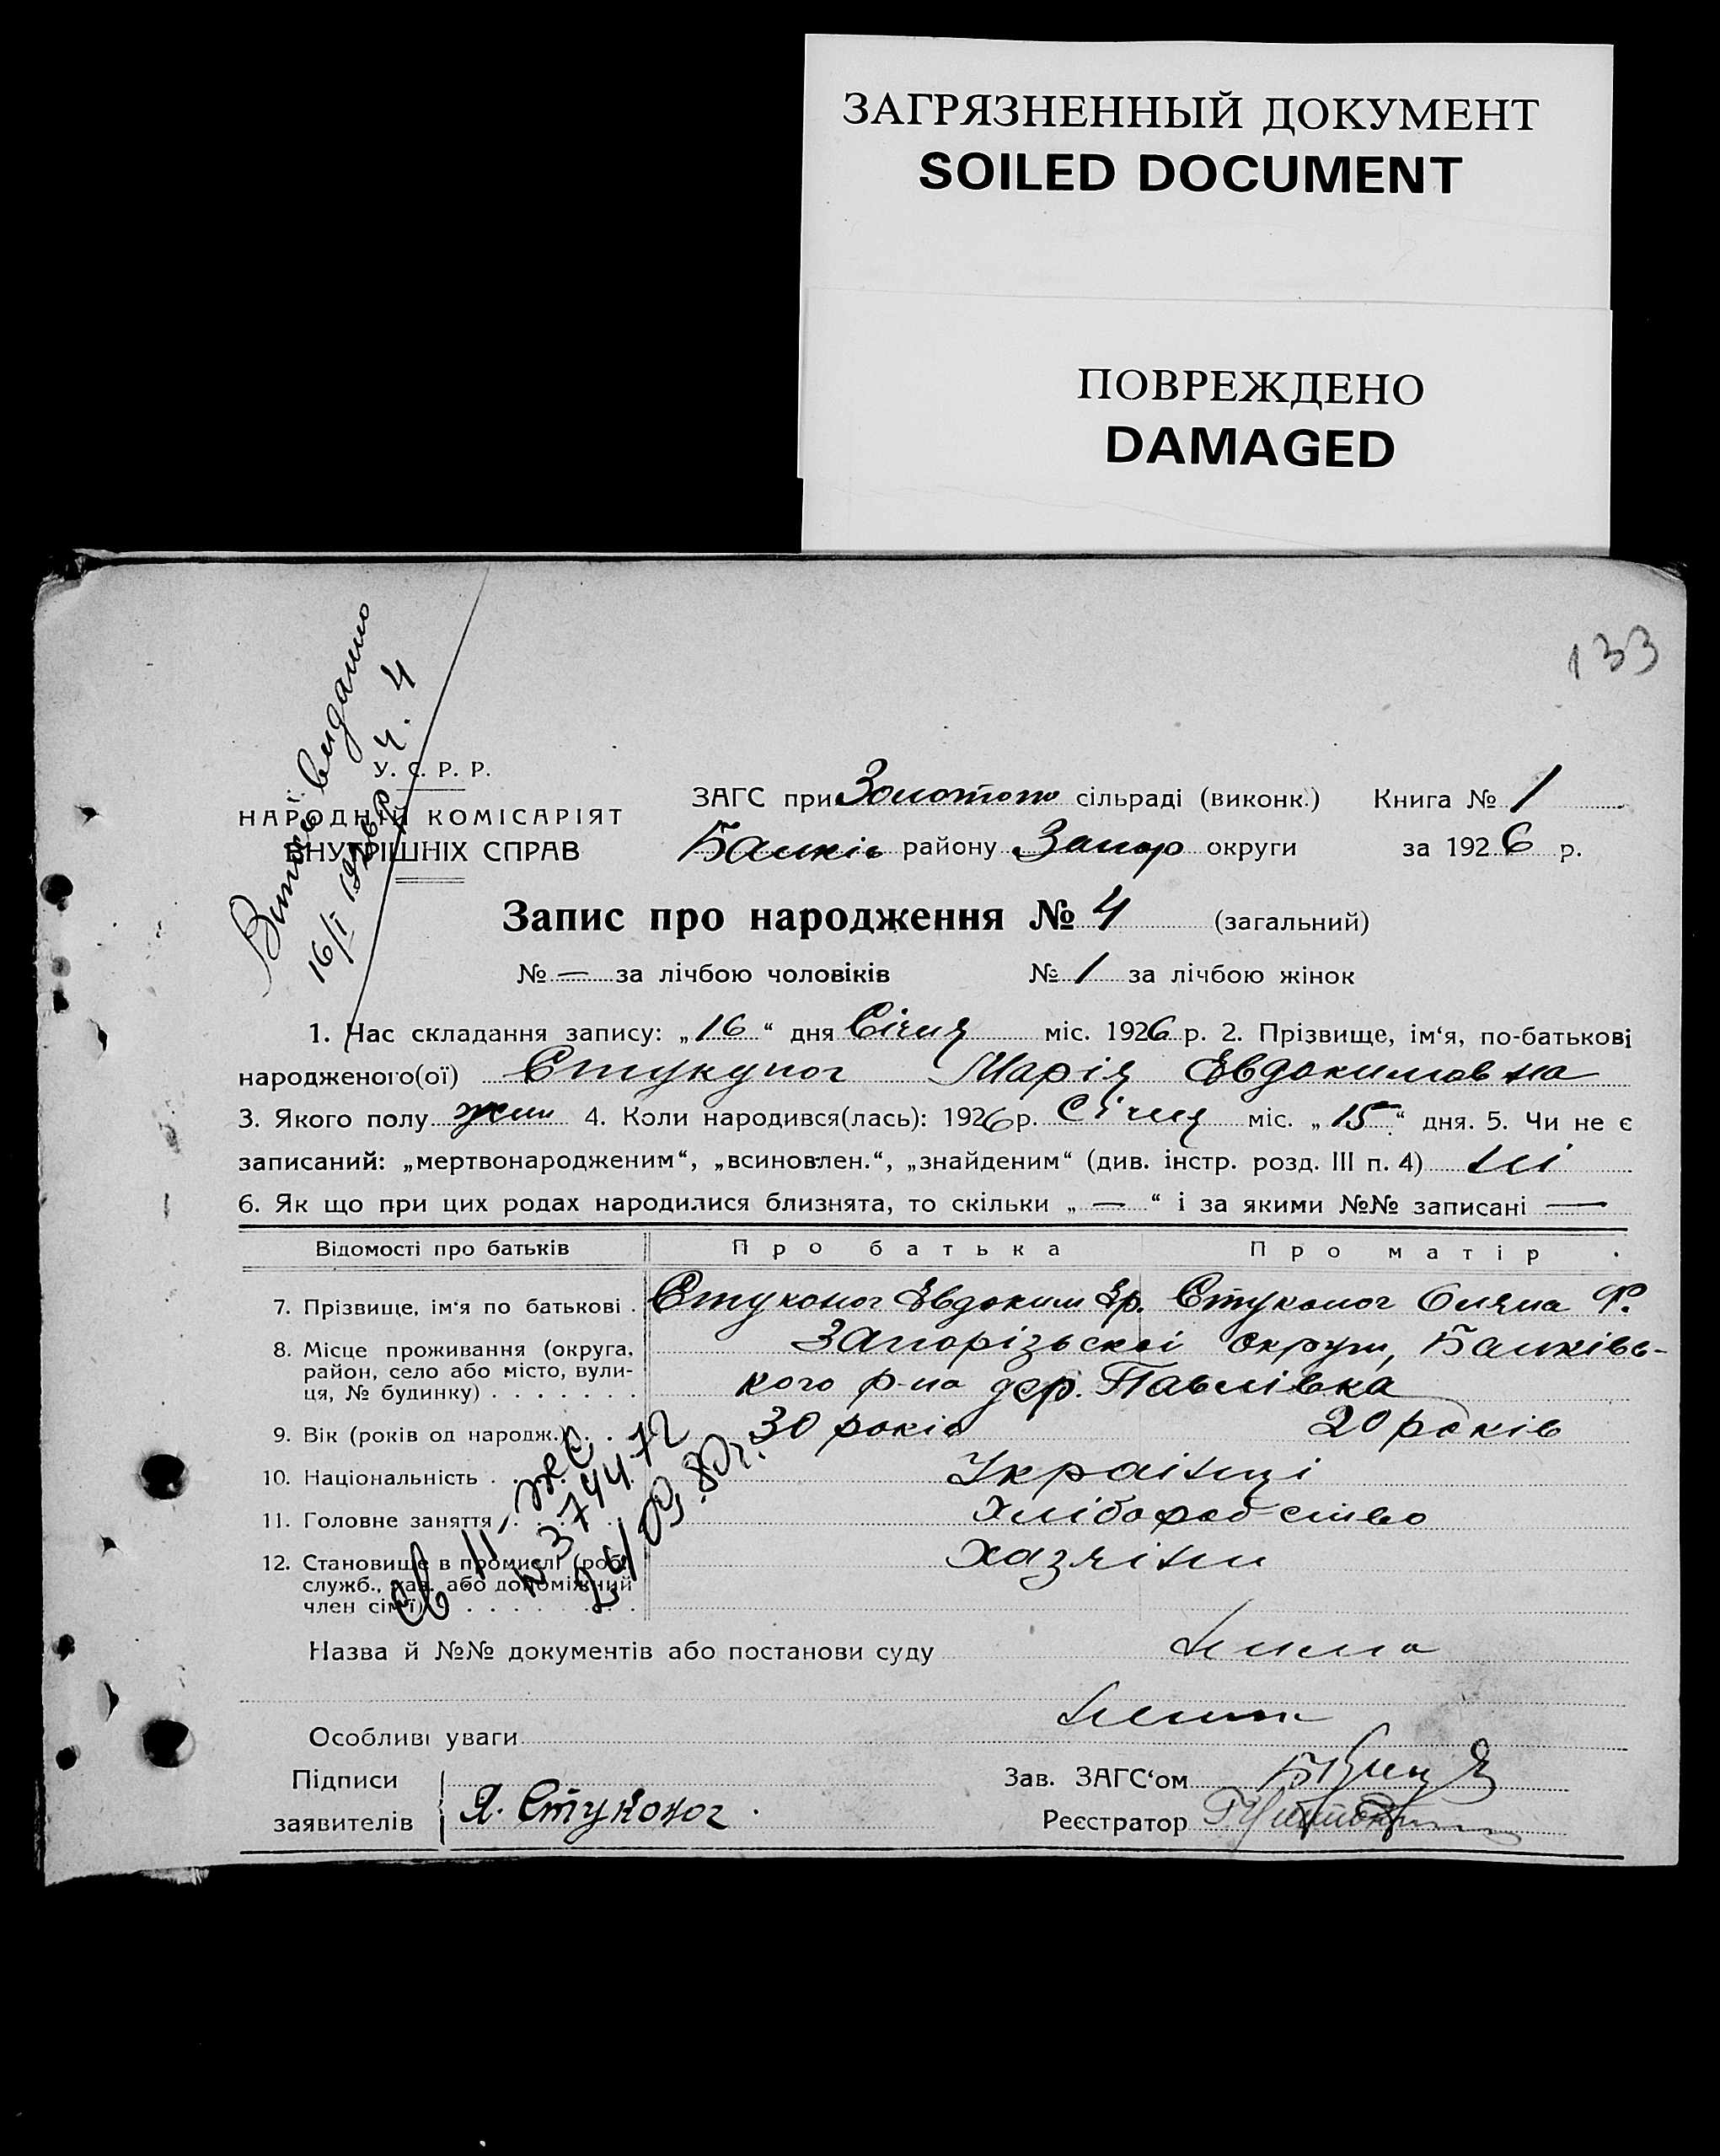 ЗАГРЯЗНЕННЫЙ ДОКУМЕНТ
SOILED DOCUMENT
ПОВРЕЖДЕНО
DAMAGED
133
Витяг видано
16/I 1926 р. ч. 4
У. С. Р. Р.
НАРОДНІЙ КОМІСАРІЯТ
ВНУТРІШНІХ СПРАВ
ЗАГС при сільраді (виконк.) Книга № 1
Балків району Запор округи за 1926 р.
Запис про народження № 4 (загальний)
№ — за лічбою чоловіків № 1 за лічбою жінок
1. Час складання запису: „16“ дня Січня міс. 1926 р. 2. Прізвище, ім‘я, по-батькові
народженого(ої) Стукуног Марія Євдокимовна
3. Якого полу жін 4. Коли народився(лась): 1926 р. Січня міс. „15“ дня. 5. Чи не є
записаний: „мертвонародженим“, „всиновлен.“, „знайденим“ (див. інстр. розд. III п. 4) ні
6. Як що при цих родах народилися близнята, то скільки „ — “ і за якими №№ записані —
Відомості про батьків Про батька Про матір
7. Прізвище, ім‘я по батькові . Стуконог Євдоким Гр. Стуконог Оляна Ф.
8. Місце проживання (округа, Запорізьскоі округи, Балківсь-
район, село або місто, вули- кого р-на дер. Павлівка
ця, № будинку) . . . . . . .
9. Вік (років од народж.) . . . 30 років 20 років
10. Національність . . . Українці
11. Головне заняття . . . Хліборобство
12. Становище в промислі (роб. Хазяіни
служб., хаз. або допоміжний
член сім‘ї) . . . . . . . .
Св II-ЖС
№ 374472
24/09.80г.
Назва й №№ документів або постанови суду Нима
Особливі уваги Нима
Підписи Зав. ЗАГС‘ом
заявителів Я. Стуконог. Реєстратор